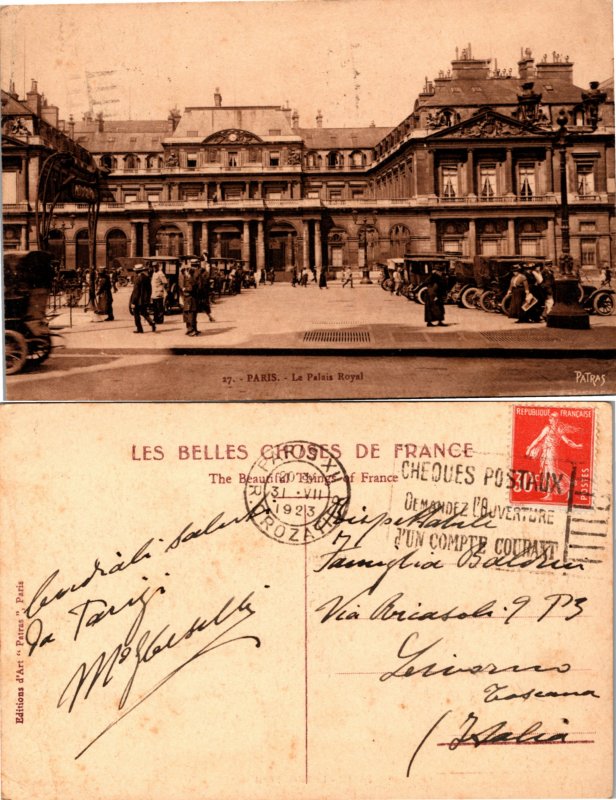 27. - PARIS. - Le Palais Royal
PATRAS
LES BELLES CHOSES DE FRANCE
The Beautiful Things of France
PARIS XII
31 -VII
1923
R. CROZATIER
CHEQUES POSTAUX
DEMANDEZ L'OUVERTURE
D'UN COMPTE COURANT
REPUBLIQUE FRANÇAISE
30
POSTES
Editions d'Art "Patras" Paris
Cordiali saluti
da Parigi
Rispettabile
Famiglia
Via Ricasoli 9 P3
Livorno
Toscana
(Italia